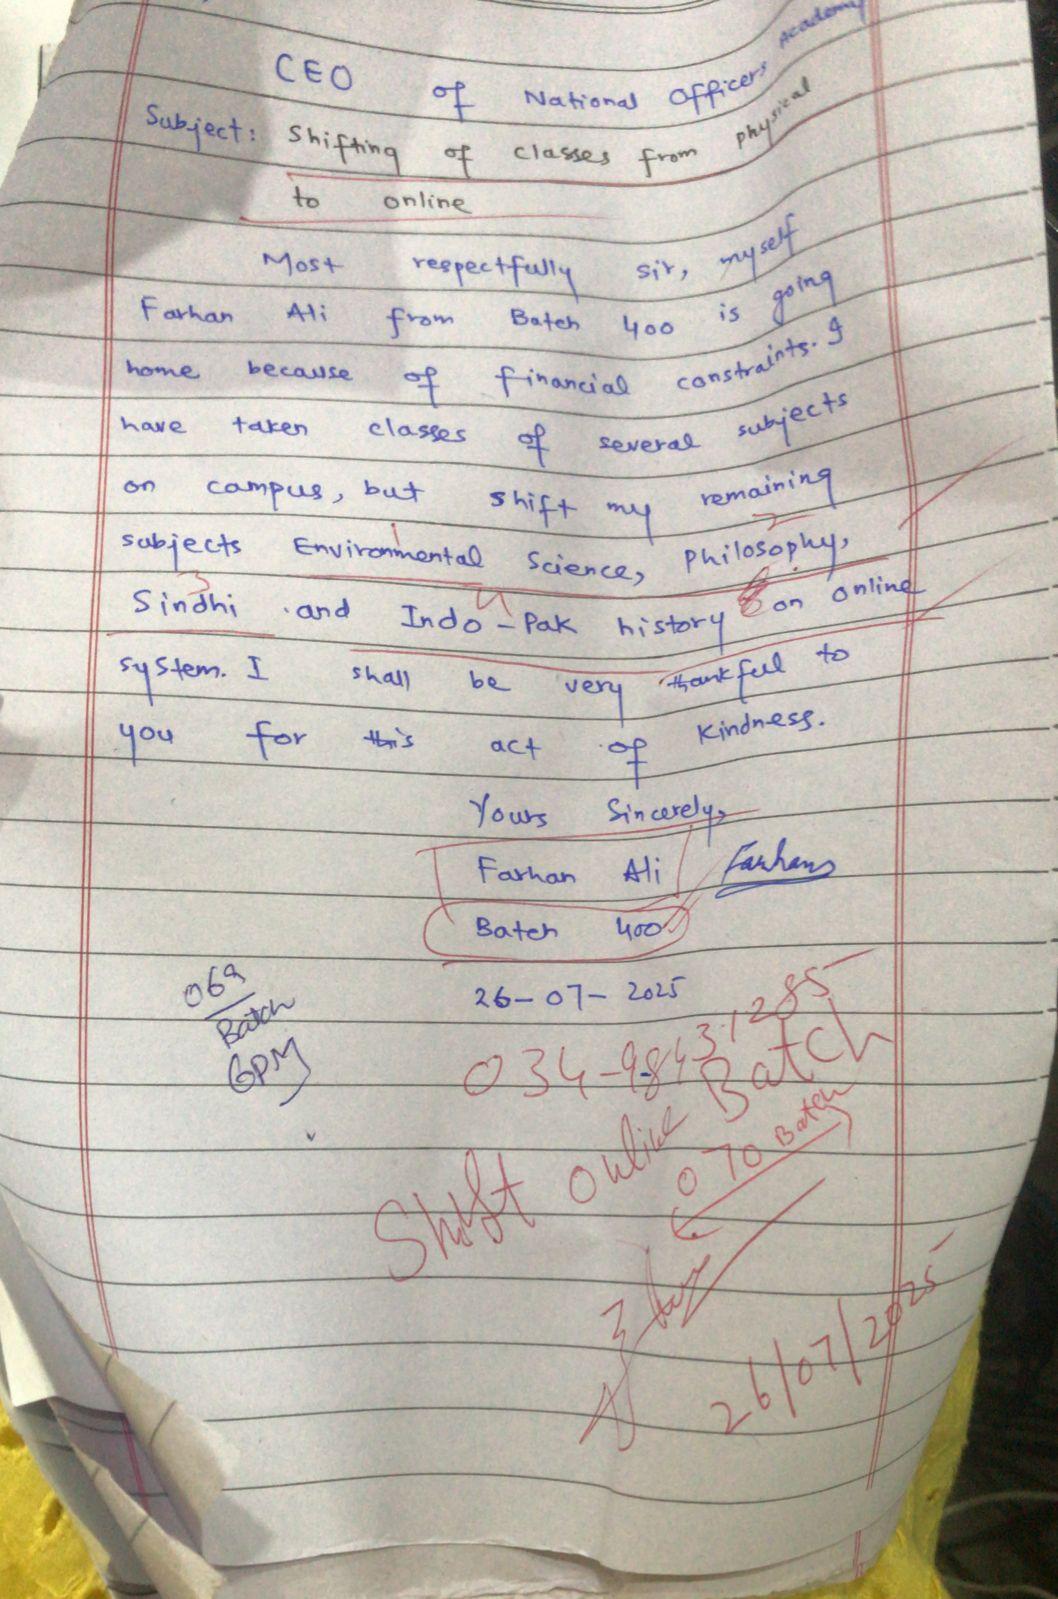 CEO of National Officers Academy
Subject: Shifting of classes from physical
to online
Most respectfully sir, myself
Farhan Ali from Batch 400 is going
home because of financial constraints. I
have taken classes of several subjects
on campus, but shift my remaining
subjects Environmental Science, Philosophy,
Sindhi and Indo-Pak history on online
system. I shall be very thankful to
you for this act of kindness.
Yours Sincerely,
Farhan Ali Farhan
Batch 400
26-07-2025
069
Batch
6PM
034-98431285
Shift online Batch
070 Batch
26/07/2025